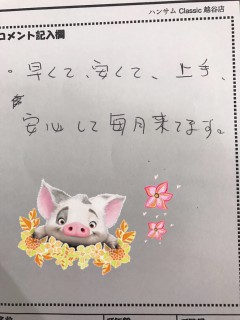 ハンサム Classic 越谷店
コメント記入欄
・早くて、安くて、上手、
安心して毎月来てます。